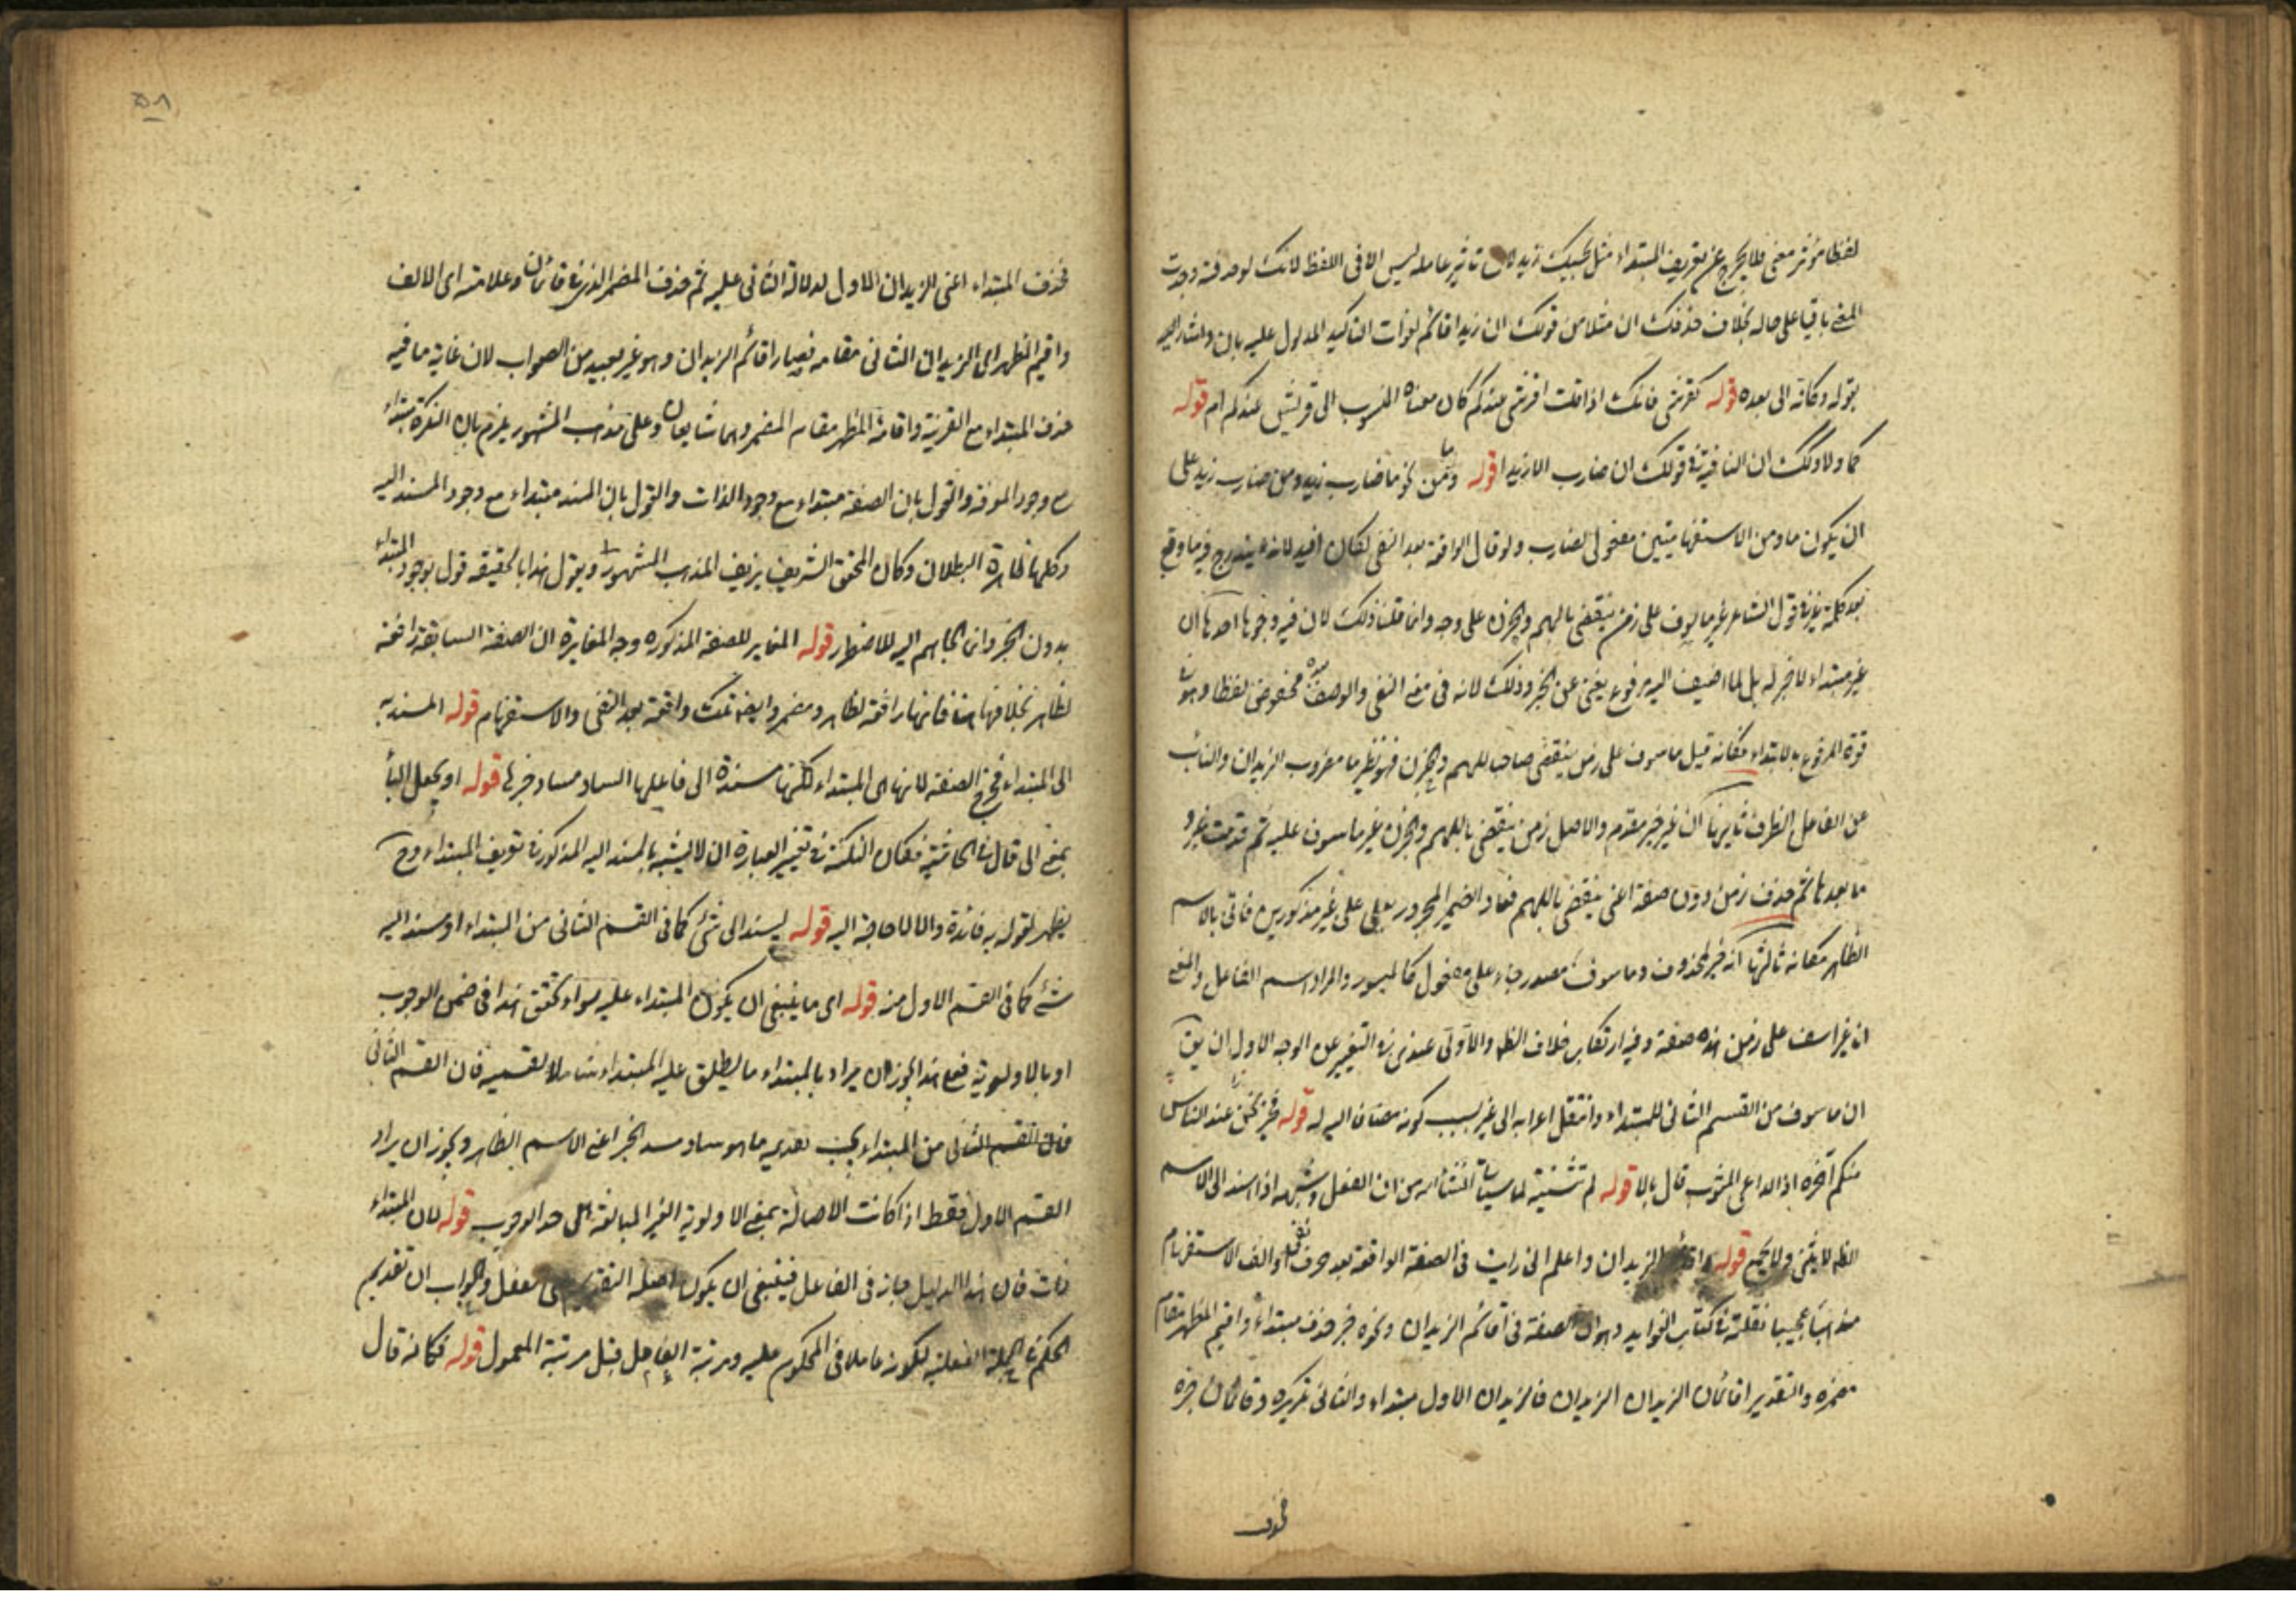 لفظا مؤثر معنى فلا يخرج عن تعريف المبتداء مثل بحسبك زيد لان تاثير عامله ليس الا فى اللفظ لانك لو حذفته وجدت
المعنى باقيا على حاله بخلاف حذفك ان مثلا من قولك ان زيدا قائم لفوات التاكيد المدلول عليه بان واشار اليه
بقوله وكانه الى بعده قوله كقرشى فانك اذا قلت اقرشى عندكم كان معناه المنسوب الى قريش عندكم ام قوله
كما ولا وكك ان النافية فى قولك ان ضارب الا زيدا قوله وما ومن نحو ما ضارب زيد ومن ضارب زيد على
ان يكون ما ومن الاستفهاميتين مفعولى لضارب ولو قال الواقعة بعد النفى لكان افيد لانه يندرج فيه ما وقع
بعد كلمة غير فى قول الشاعر غير ماسوف على زمن ينقضى بالهم والحزن على وجه وانما قلنا ذلك لان فيه وجوها احدها ان
غير مبتداء لا خبر له بل لما اضيف اليه مرفوع يغنى عن الخبر وذلك لانه فى معنى النفى والوصف بعده مخفوض لفظا وهو فى
قوة المرفوع بالابتداء فكانه قيل ماسوف على زمن ينقضى صاحبا للهم والحزن فهو نظير ما مضروب الزيدان والنائب
عن الفاعل الظرف ثانيها ان غير خبر مقدم والاصل زمن ينقضى بالهم والحزن غير ماسوف عليه ثم قدمت غير و
ما بعدها ثم حذف زمن دون صفة اعنى ينقضى بالهم فعاد الضمير المجرور بعلى على غير مذكور فاتى بالاسم
الظاهر مكانه ثالثها انه خبر لمحذوف وماسوف مصدر جاء على مفعول كالميسور والمراد اسم الفاعل والمعنى
انا غير اسف على زمن هذه صفته وفيه ارتكاب خلاف الظ والاولى عندى فى التعبير عن الوجه الاول ان يق
ان ماسوف من القسم الثانى للمبتداء وانتقل اعرابه الى غير بسبب كونه مضاف اليه له قوله فخير نحن عند الناس
منكم آخره اذا الداعى المثوب قال يالا قوله لم تثنية لما سياتى انشاء الله من ان الفعل وشبهه اذا اسند الى الاسم
الظ لا يثنى ولا يجمع قوله اقائم الزيدان واعلم انى رايت فى الصفة الواقعة بعد حرف النفى والف الاستفهام
مذهبا عجيبا نقلته فى كتاب الفوايد وهو ان الصفة فى اقائم الزيدان ونحوه خبر حذف مبتداءه واقيم المظهر مقام
مضمره والتقدير اقائمان الزيدان الزيدان فالزيدان الاول مبتداء والثانى تكريره وقائمان خبره
فحذف
٥٨
فحذف المبتداء اعنى الزيدان الاول لدلالة الثانى عليه ثم حذف المضمر الذى فى قائمان وعلامته اى الالف
واقيم المظهر اى الزيدان الثانى مقامه فصار اقائم الزيدان وهو غير بعيد من الصواب لان غاية ما فيه
حذف المبتداء مع القرينة واقامة المظهر مقام المضمر وهما شايعان وعلى مذهب المشهور يلزم بان النكرة مبتداء
مع وجود المعرفة والقول بان الصفة مبتداء مع وجود الذات والقول بان المسند مبتداء مع وجود المسند اليه
وكلها ظاهرة البطلان وكان المحقق الشريف يزيف المذهب المشهور ويقول هذا بالحقيقة قول بوجود المبتداء
بدون الخبر وانما الجاهم اليه الاضطرار قوله المغاير للصفة المذكورة وجه المغايرة ان الصفة السابقة رافعة
لظاهر بخلافها هنا فانها رافعة لظاهر ومضمر وايضا تلك واقعة بعد النفى والاستفهام قوله المسند به
الى المبتداء فخرج الصفة لانها هى المبتداء لكنها مسندة الى فاعلها الساد مساد خبرها قوله او يجعل الباء
بمعنى الى قال فى الحاشية فكان النكتة فى تغيير العبارة ان لا يشتبه بالمسند اليه المذكور فى تعريف المبتداء وح
يظهر لقوله به فائدة والا لا حاجة اليه قوله ليسند الى شئ كما فى القسم الثانى من المبتداء او يسند اليه
شئ كما فى القسم الاول منه قوله اى ما ينبغى ان يكون المبتداء عليه سواء تحقق هذا فى ضمن الوجوب
او بالاولوية فعلى هذا يجوز ان يراد بالمبتداء ما يطلق عليه المبتداء شاملا لقسميه فان القسم الثانى
فان القسم الثانى من المبتداء يجب تقديمه ما هو ساد مسد الخبر اعنى الاسم الظاهر ويجوز ان يراد
القسم الاول فقط اذا كانت الاصالة بمعنى الاولوية الغير البالغة الى حد الوجوب قوله لان المبتداء
ذات فان هذا الدليل جاز فى الفاعل فينبغى ان يكون اصله التقديم على الفعل والجواب ان تقديم
الحكم فى الجملة الفعلية لكونه عاملا فى المحكوم عليه ومرتبة العامل قبل مرتبة المعمول قوله فكانه قال